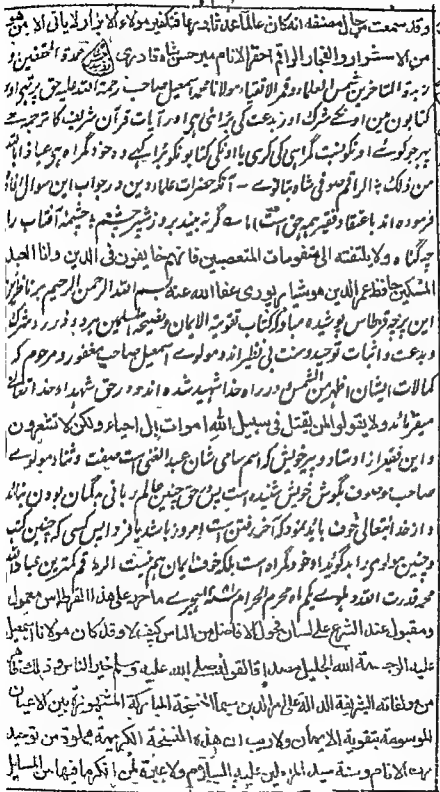 وقد سمعت من حال مصنفه انه كان عالما
من الاستشرار والفجار الراقم احقر الانام مير حسن شاه قادری عمدة المحققین و
زبدة المتاخرین شمس العلماء وقمر الاتقیاء مولانا محمد اسمعیل صاحب رحمة الله علیه حق پر تهے اور
کتابون مین اونکے شرک اور بدعت کی برائی ہی اور آیات قرآن شریف کا ترجمه ہے
پهر جو کوئے اونکو نسبت گمراہی کی کری یا اونکی کتابونکو برا کہے وہ خود گمراہ ہی عیاذا بالله
من ذلك الراقم صوفی شاه بٹالوے ۔ آنکه حضرات علما دین در جواب این سوال افاده
فرموده اند باعتقاد فقیر همه حق است ابیات گر نه بیند بروز شپره چشم ؛ چشمه آفتاب را
چه گناه ولا یلتفت الی متقومات المتعصبین فانهم خایفون فی الدین وانا العبد
المسکین حافظ عمر الدین هوشیارپوری عفا الله عنه بسم الله الرحمن الرحیم بر ناظرین
این پرچه قرطاس پوشیده مباد که کتاب تقویة الایمان ونصیحة المسلمین هر دو در رد شرک
و بدعت و اثبات توحید و سنت بی نظیر اند و مولوے اسمعیل صاحب مغفور و مرحوم که
کمالات ایشان اظهر من الشمس در راه خدا شهید شده اند و در حق شهداء خدا تعالی
میفرماند ولا یقولوا لمن یقتل فی سبیل الله اموات بل احیاء ولکن لا تشعرون
و این فقیر از استاد و پیر خویش که اسم سامی شان عبد الغنی است صفت و ثناء مولوے
صاحب موصوف بگوش خویش شنیده است پس در حق چنین عالم ربانی بدگمان بودن نباید
و از خدا تعالی خوف باید نمود که آخر رفتن است امروز باشد یا فردا پس کسی که چنین کتب
و چنین مولوی را بد گوید او خود گمراه است بلکه خوف ایمان هم نیست الراقم کمترین عباد الله
محمد قدرت الله دہلوے یکم ماه محرم الحرام هجرے ما حرر علی هذا القرطاس معمول
ومقبول عند الشرع علی لسان فحول الافاضل من الناس کیف لا وقد کان مولانا اسمعیل
علیه الرحمة الله الجلیل مصداقا لقوله صلی الله علیه وسلم خیر الناس
من ولفاته الشریفة الدالة علی امر الدین سیما النسخة المبارکة المشهورة بین الاعیان
الموسومة بتقویة الایمان ولا ریب ان هذه النسخة الکریمة مملوة من توحید
رب الانام وسنة سید المرسلین علیه السلام ولا عبرة لمن انکر ما فیها من المسایل